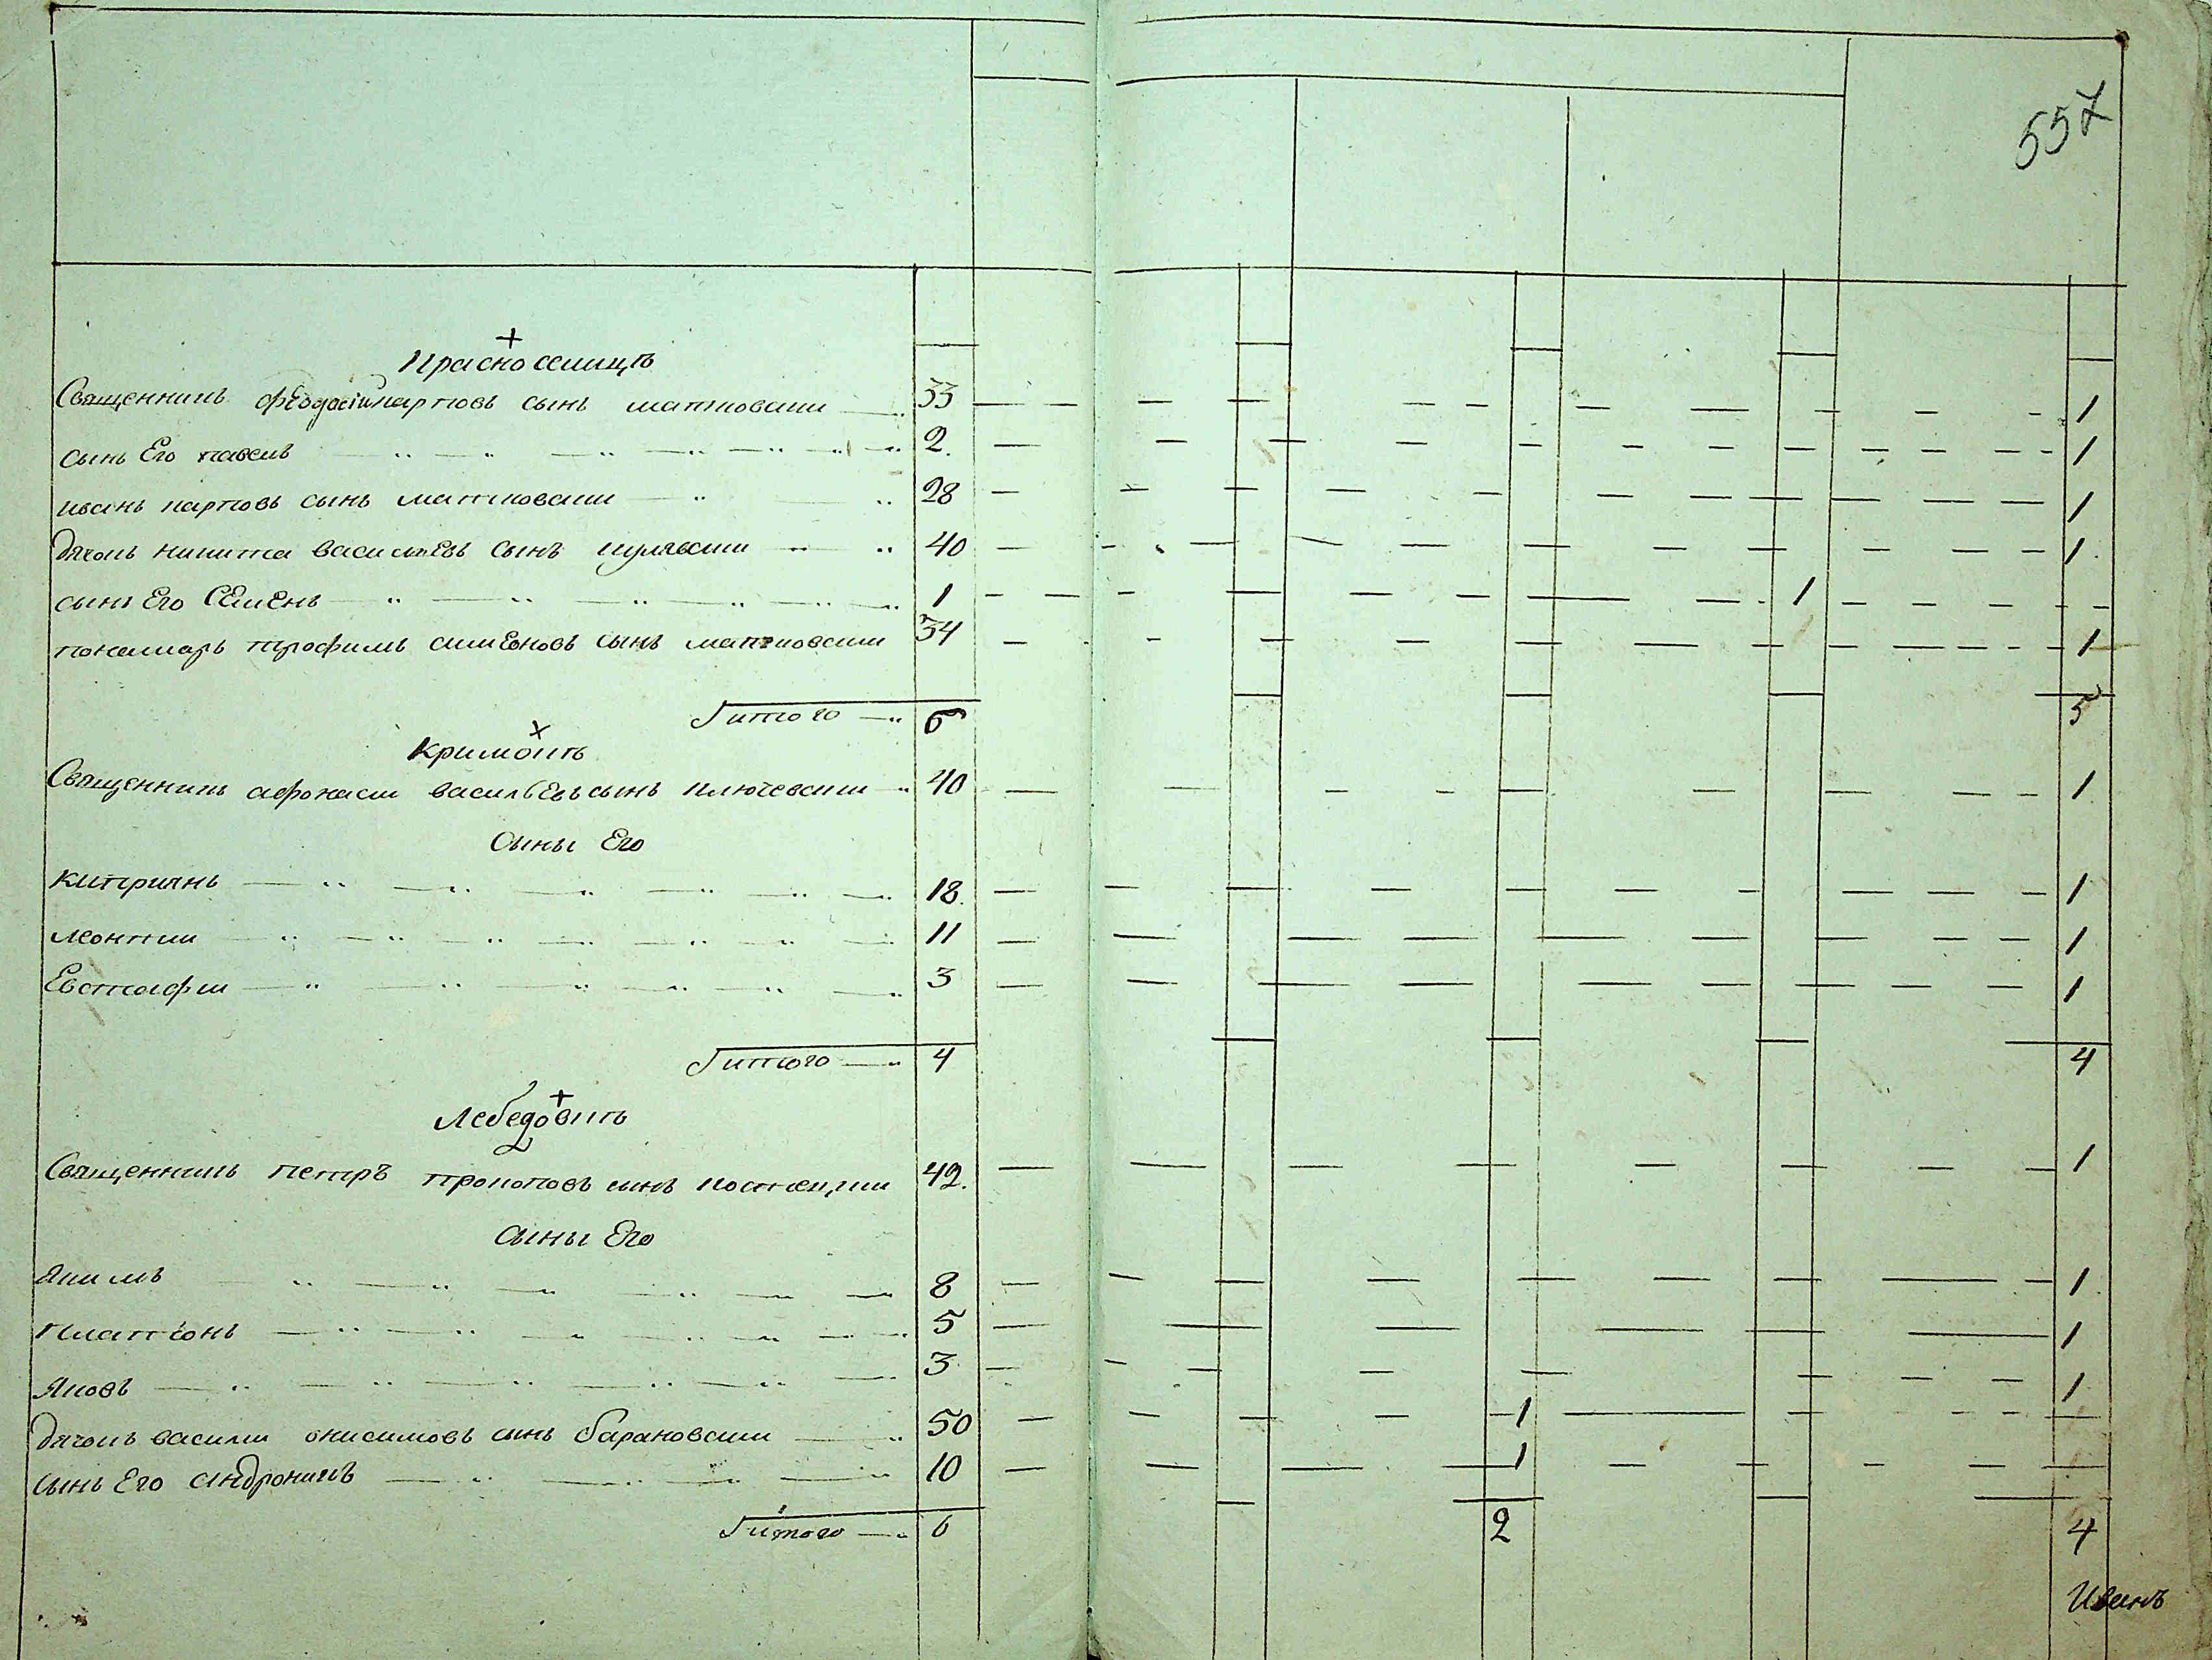 557
Красноселицъ
Священникъ феодосій карповъ сынъ матковски 33 1
сынъ Его павелъ 2. 1
иванъ карповъ сынъ матковски 28 1
дячокъ никита василиевъ сынъ кулявски 40 1
сынъ Его Семенъ 1 1
понамарь трофимъ симеоновъ сынъ матковски 34 1
итого 6 5
Кримокъ
Священникъ афонаси васильевъ сынъ ключевски 40 1
Сыны Его
Киприянъ 18. 1
леонтии 11 1
Евстафи 3 1
итого 4 4
Лебедовкъ
Священникъ петръ прокоповъ сынъ костецки 42. 1
Сыны Его
Якимъ 8 1
платонъ 5 1
Яковъ 3 1
дячокъ василии онисимовъ сынъ барановски 50 1
сынъ Его андроникъ 10 1
итого 6 2 4
Иванъ